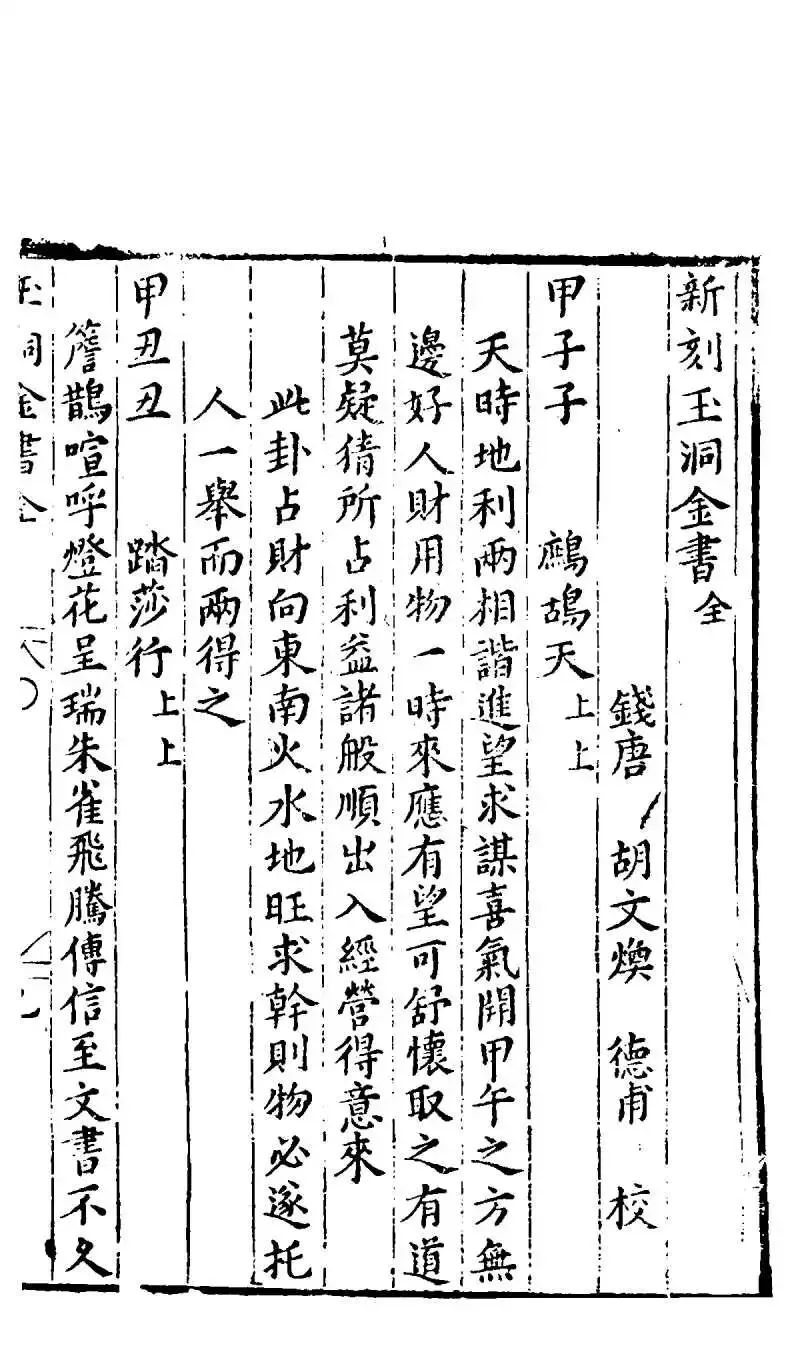 新刻玉洞金書全
錢唐 胡文煥 德甫 校
甲子子 鷓鴣天上上
天時地利兩相諧進望求謀喜氣開甲午之方無
邊好人財用物一時來應有望可舒懷取之有道
莫疑猜所占利益諸般順出入經營得意來
此卦占財向東南火水地旺求幹則物必遂托
人一舉而兩得之
甲丑丑 踏莎行上上
簷鵲喧呼燈花呈瑞朱雀飛騰傳信至文書不久
玉洞金書全